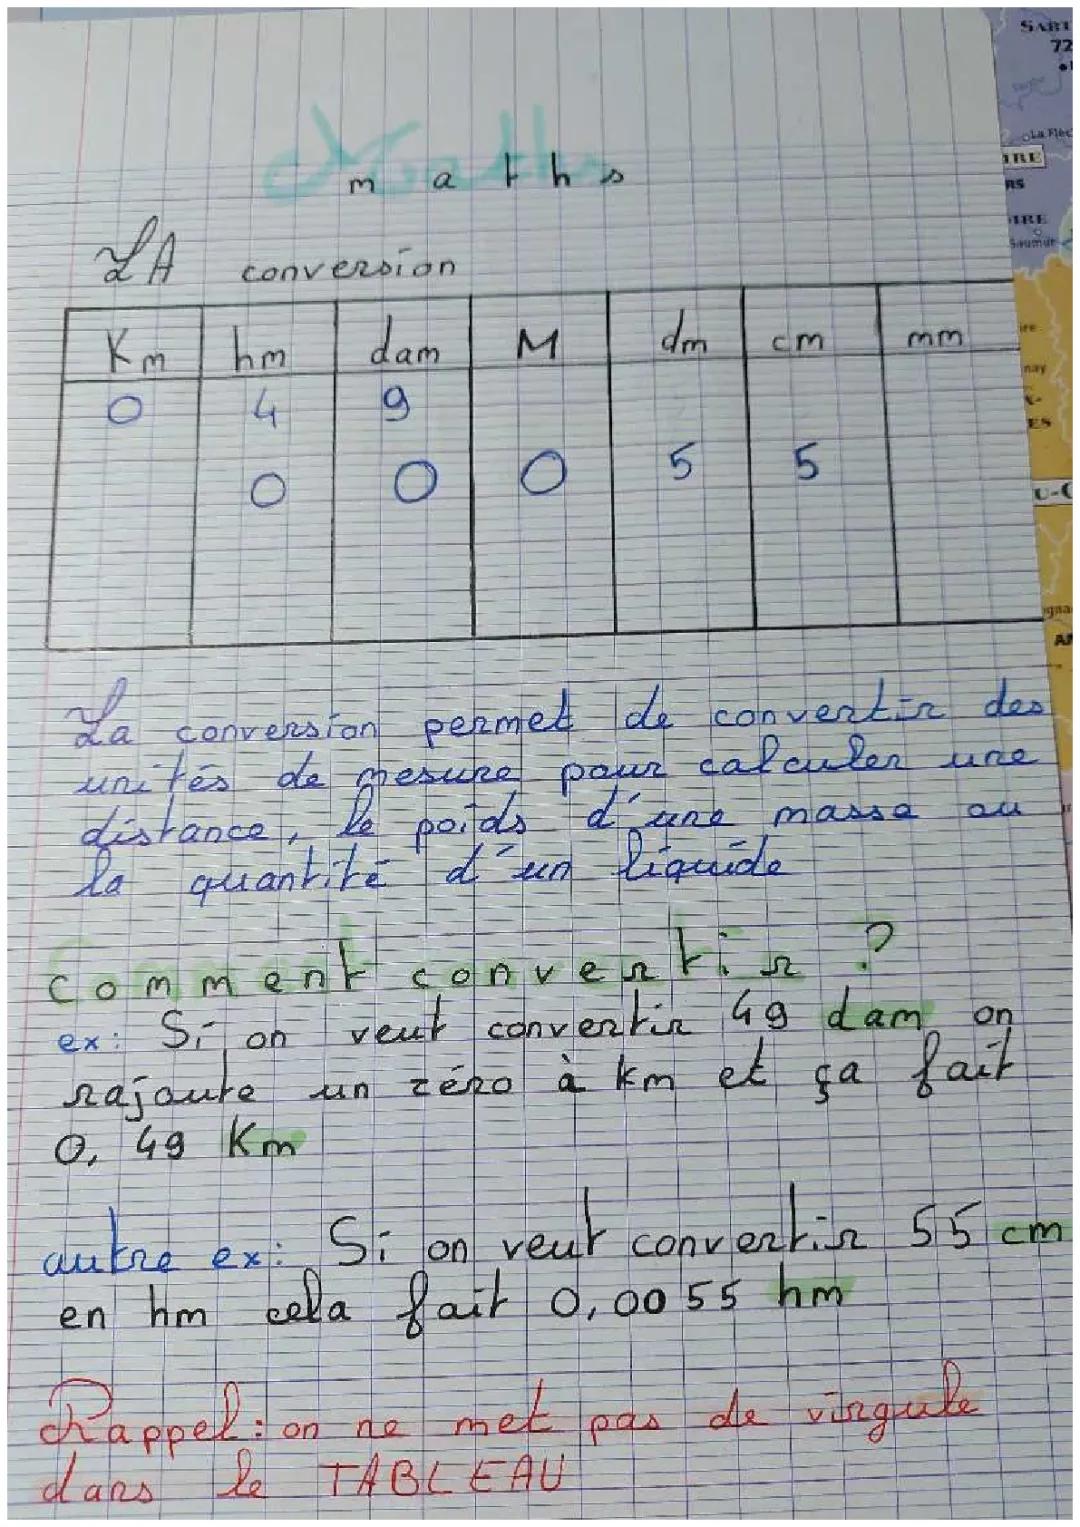 Maths
m a t h s
LA conversion
Km hm dam M dm cm mm
0 4 9
0 0 0 5 5
La conversion permet de convertir des
unités de mesure pour calculer une
distance, le poids d'une masse ou
la quantité d'un liquide
comment convertir ?
ex: Si on veut convertir 49 dam on
rajoute un zéro à km et ça fait
0,49 Km
autre ex: Si on veut convertir 55 cm
en hm cela fait 0,0055 hm
Rappel: on ne met pas de virgule
dans le TABLEAU
SART
72
La Flèc
IRE
RS
IRE
Saumur
nay
ES
U-C